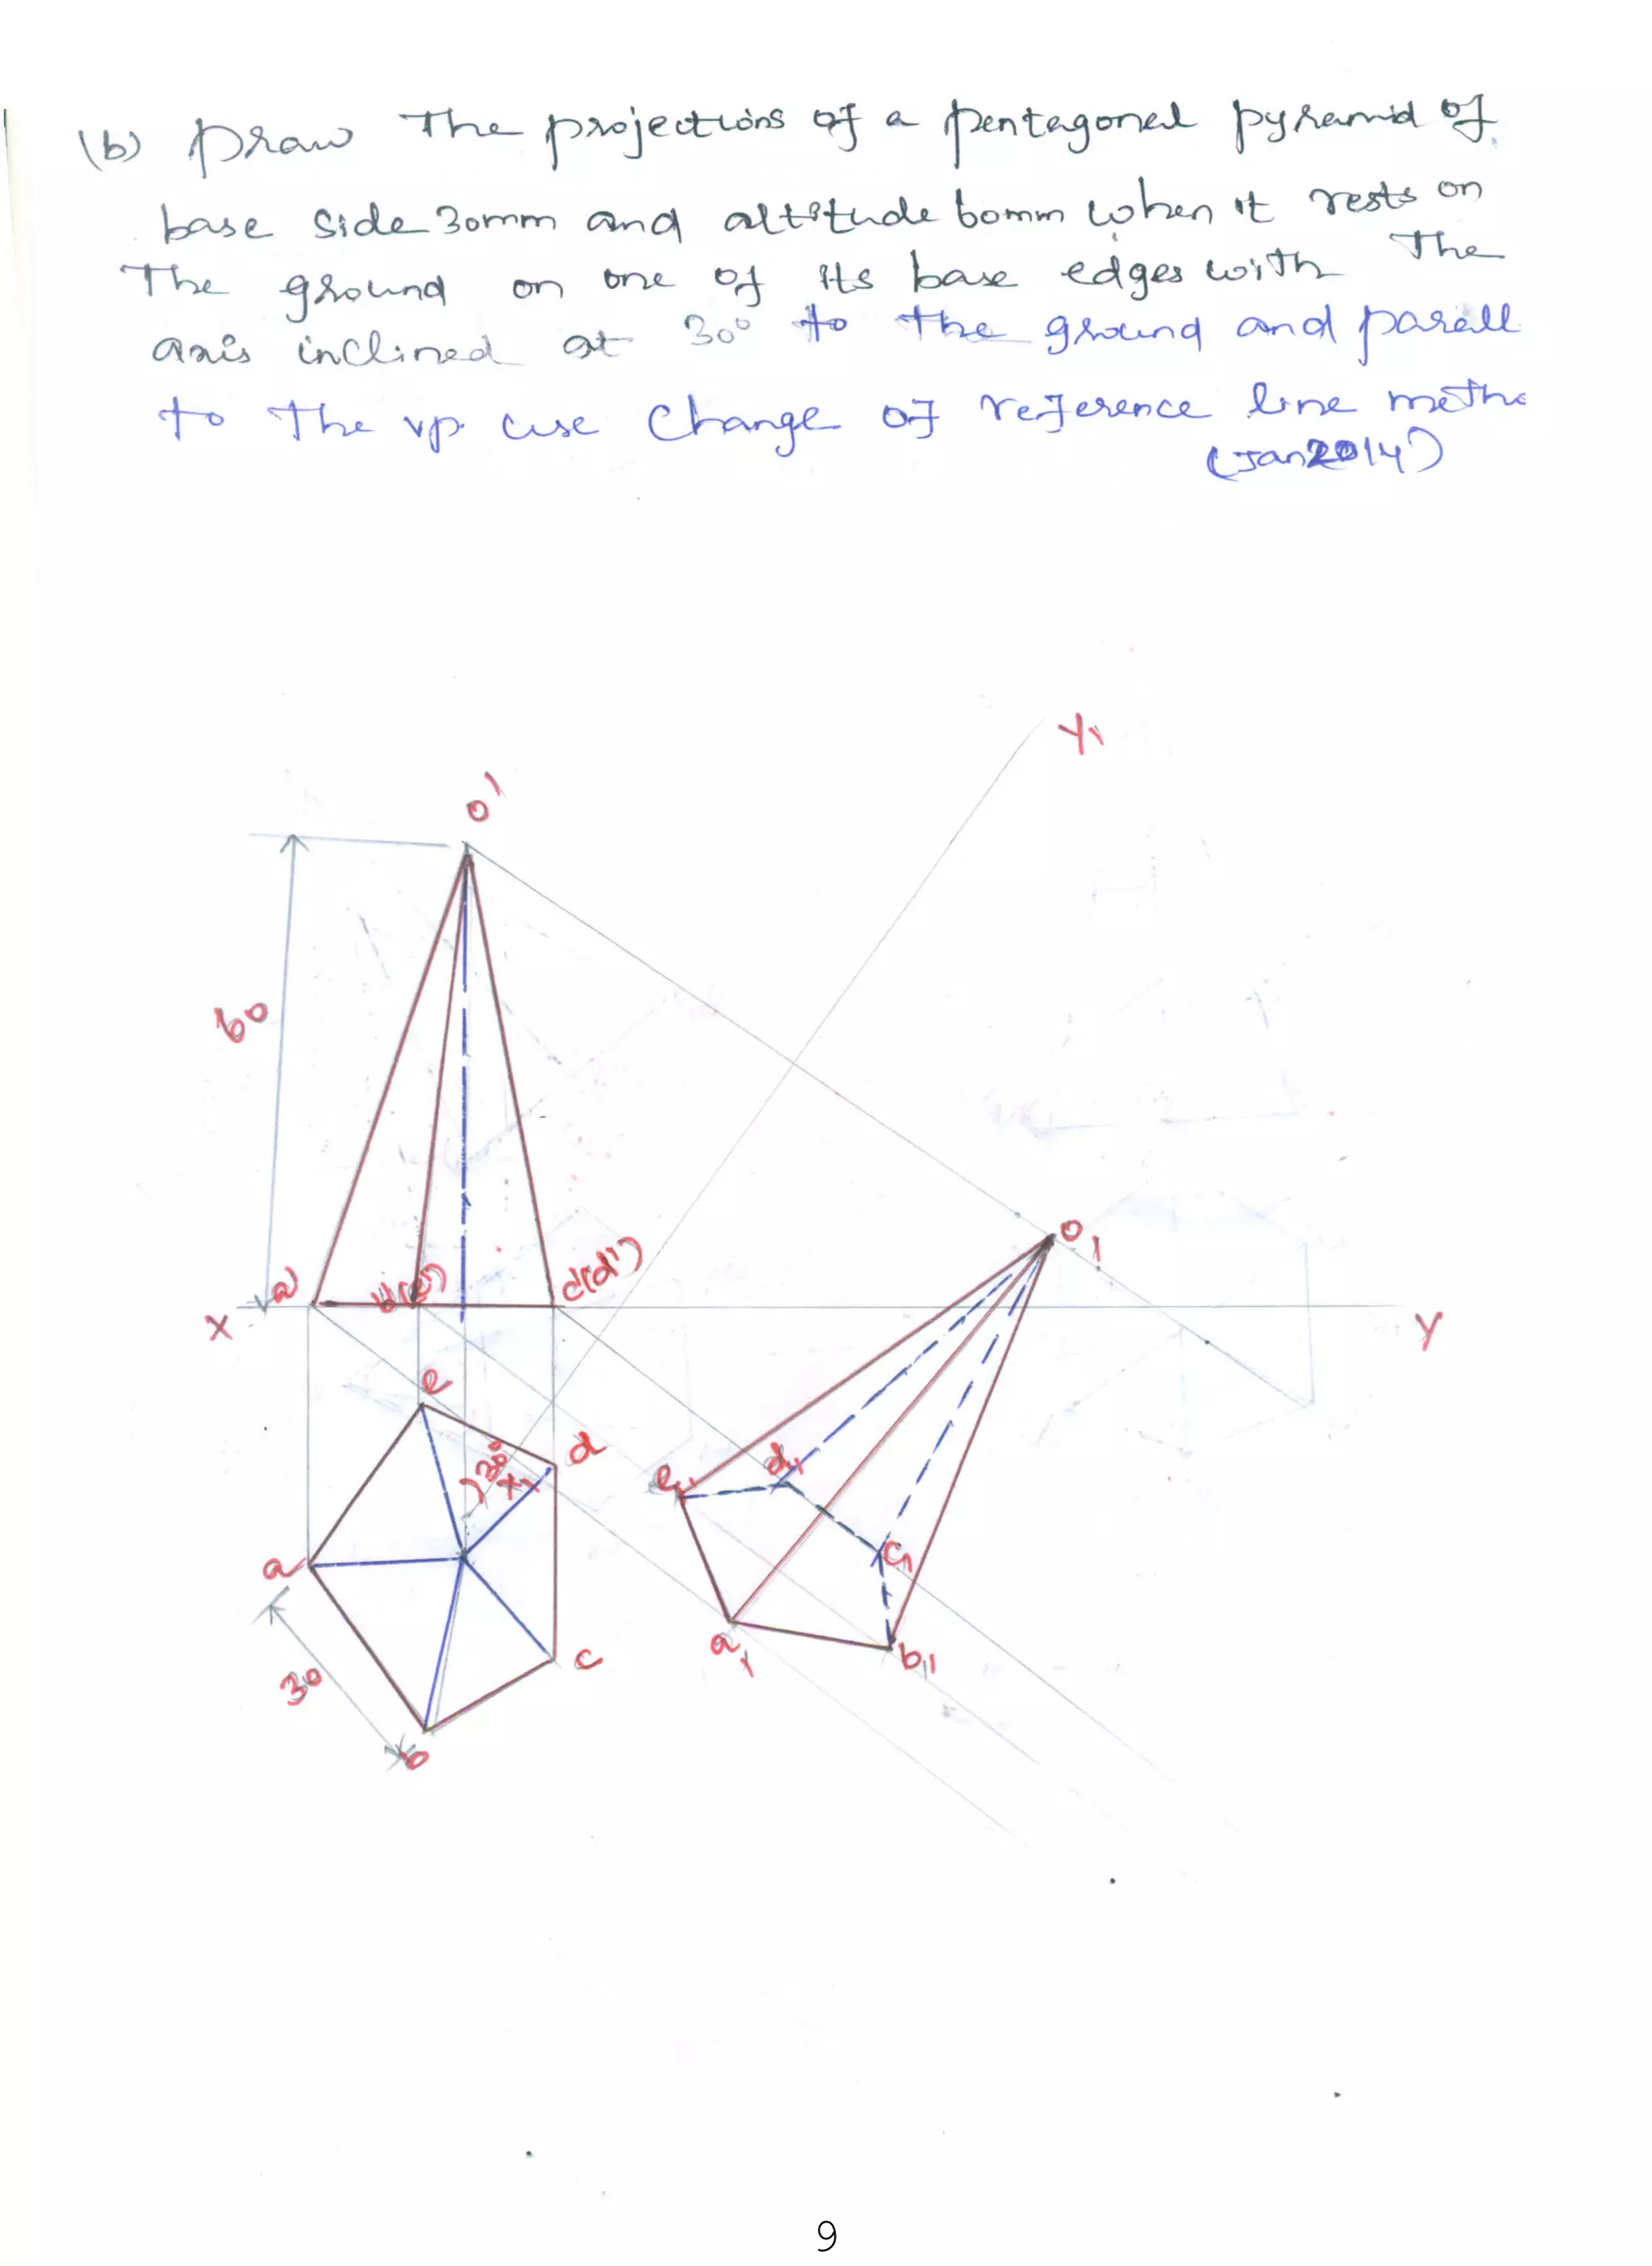 (b) Draw The projections of a pentagonal pyramid of
base side 30mm and altitude 60mm when it rests on
The ground on one of its base edges with The
axis inclined at 30° to the ground and parall
to The vp use Change of reference line metho
(Jan2014)
Y1
o'
60
a'
b'(e')
c'(d')
X
Y
o1
e
d
30°
x1
e1
d1
a
c1
a1
b1
c
30
b
9